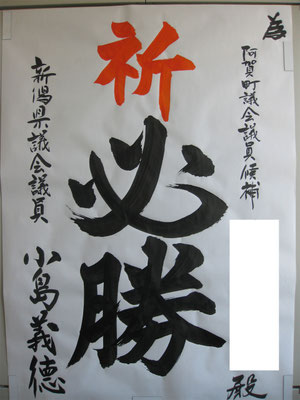 為
阿賀町議会議員候補
殿
祈
必勝
新潟県議会議員
小島義徳